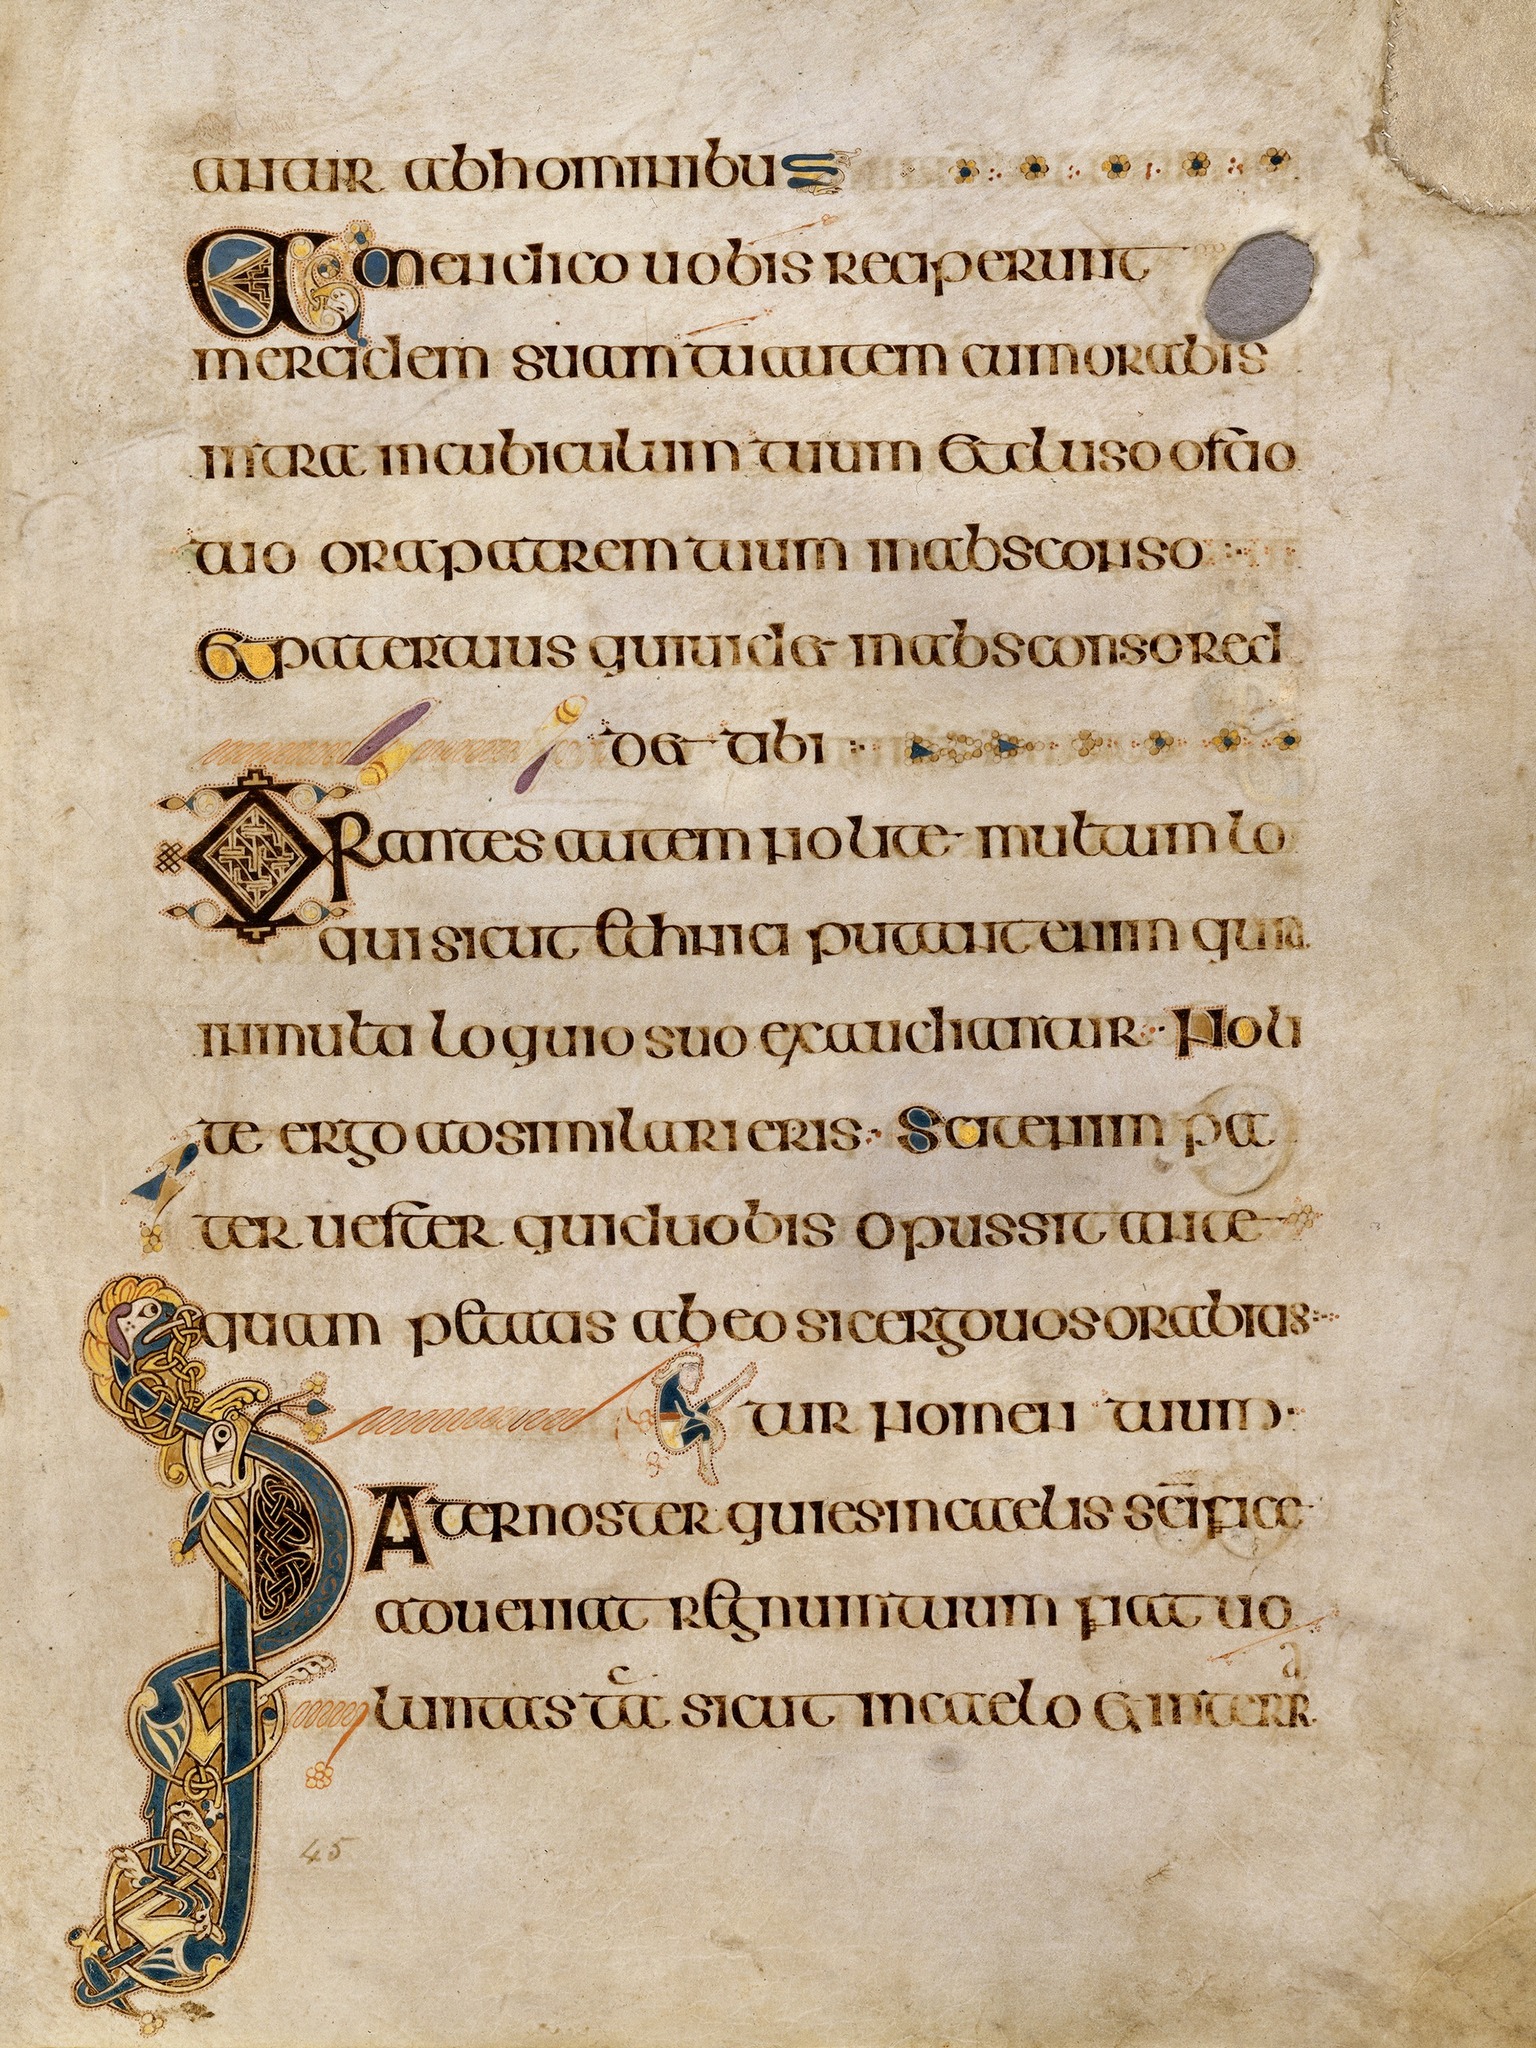 antur abhominibus
Amendico uobis reciperunt
mercidem suam tu autem cum orabis
intra in cubiculum tuum et cluso osteo
tuo ora patrem tuum in absconso
et pater tuus qui uidet in absconso red
det tibi
Orantes autem nolite multum lo
qui sicut ethnici putant enim quia
in multa loquio suo exaudiantur Noli
te ergo adsimilari eris Scit enim pa
ter uester quid uobis opus sit ante
quam petatis ab eo sic ergo uos orabitis
tur nomen tuum
Pater noster qui es in caelis scifice
adueniat regnum tuum fiat uo
luntas tua sicut in caelo et in terr
a
45